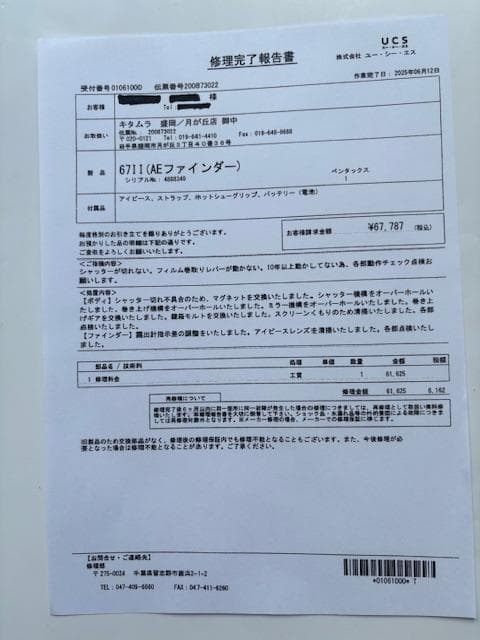 修理完了報告書
UCS
ユー・シー・エス
株式会社 ユー・シー・エス
作業完了日： 2025年06月12日
受付番号01061000 伝票番号200873022
お客様 様
Tel：
お取扱い キタムラ 盛岡／月が丘店 御中
伝票No. 200873022
〒020-0121 Tel：019-641-4410 Fax：019-648-8688
岩手県盛岡市月が丘３丁目４０番３６号
製 品 67II(AEファインダー) ペンタックス
シリアルNo.：4888349 1
付属品 アイピース、ストラップ、ホットシューグリップ、バッテリー（電池）
毎度格別のお引き立てを賜りありがとうございます。
お預かりした品の明細は下記の通りです。
ご査収をよろしくお願いいたします。
お客様請求金額 ¥67,787 (税込)
＜ご指摘内容＞
シャッターが切れない。フィルム巻取りレバーが動かない。10年以上動かしてない為、各部動作チェック点検お
願いします。
＜処置内容＞
【ボディ】シャッター切れ不具合のため、マグネットを交換いたしました。シャッター機構をオーバーホールい
たしました。巻き上げ機構をオーバーホールいたしました。ミラー機構をオーバーホールいたしました。巻き上
げギアを交換いたしました。鏡箱モルトを交換いたしました。スクリーンくもりのため清掃いたしました。各部
点検いたしました。
【ファインダー】露出計指示差の調整をいたしました。アイピースレンズを清掃いたしました。各部点検いたし
ました。
部品名 / 技術料 処理 単価 数量 金額 税額
1 修理料金 工賃 1 61,625
修理金額 61,625 6,162
再修理について
修理完了後６ヶ月以内に同一箇所に同一故障が発生した場合の修理につきましては、再修理として取扱い無料修理
旧製品のため交換部品がなく、修理後の修理保証内でも修理不能となることもございます。また、今後修理が必
要となった場合は修理不能となることがあります。ご了承ください。
【お問合せ・ご連絡先】
修理部
〒275-0024 千葉県習志野市茜浜2-1-2
TEL：047-409-6660 FAX：047-411-6260
*01061000* T